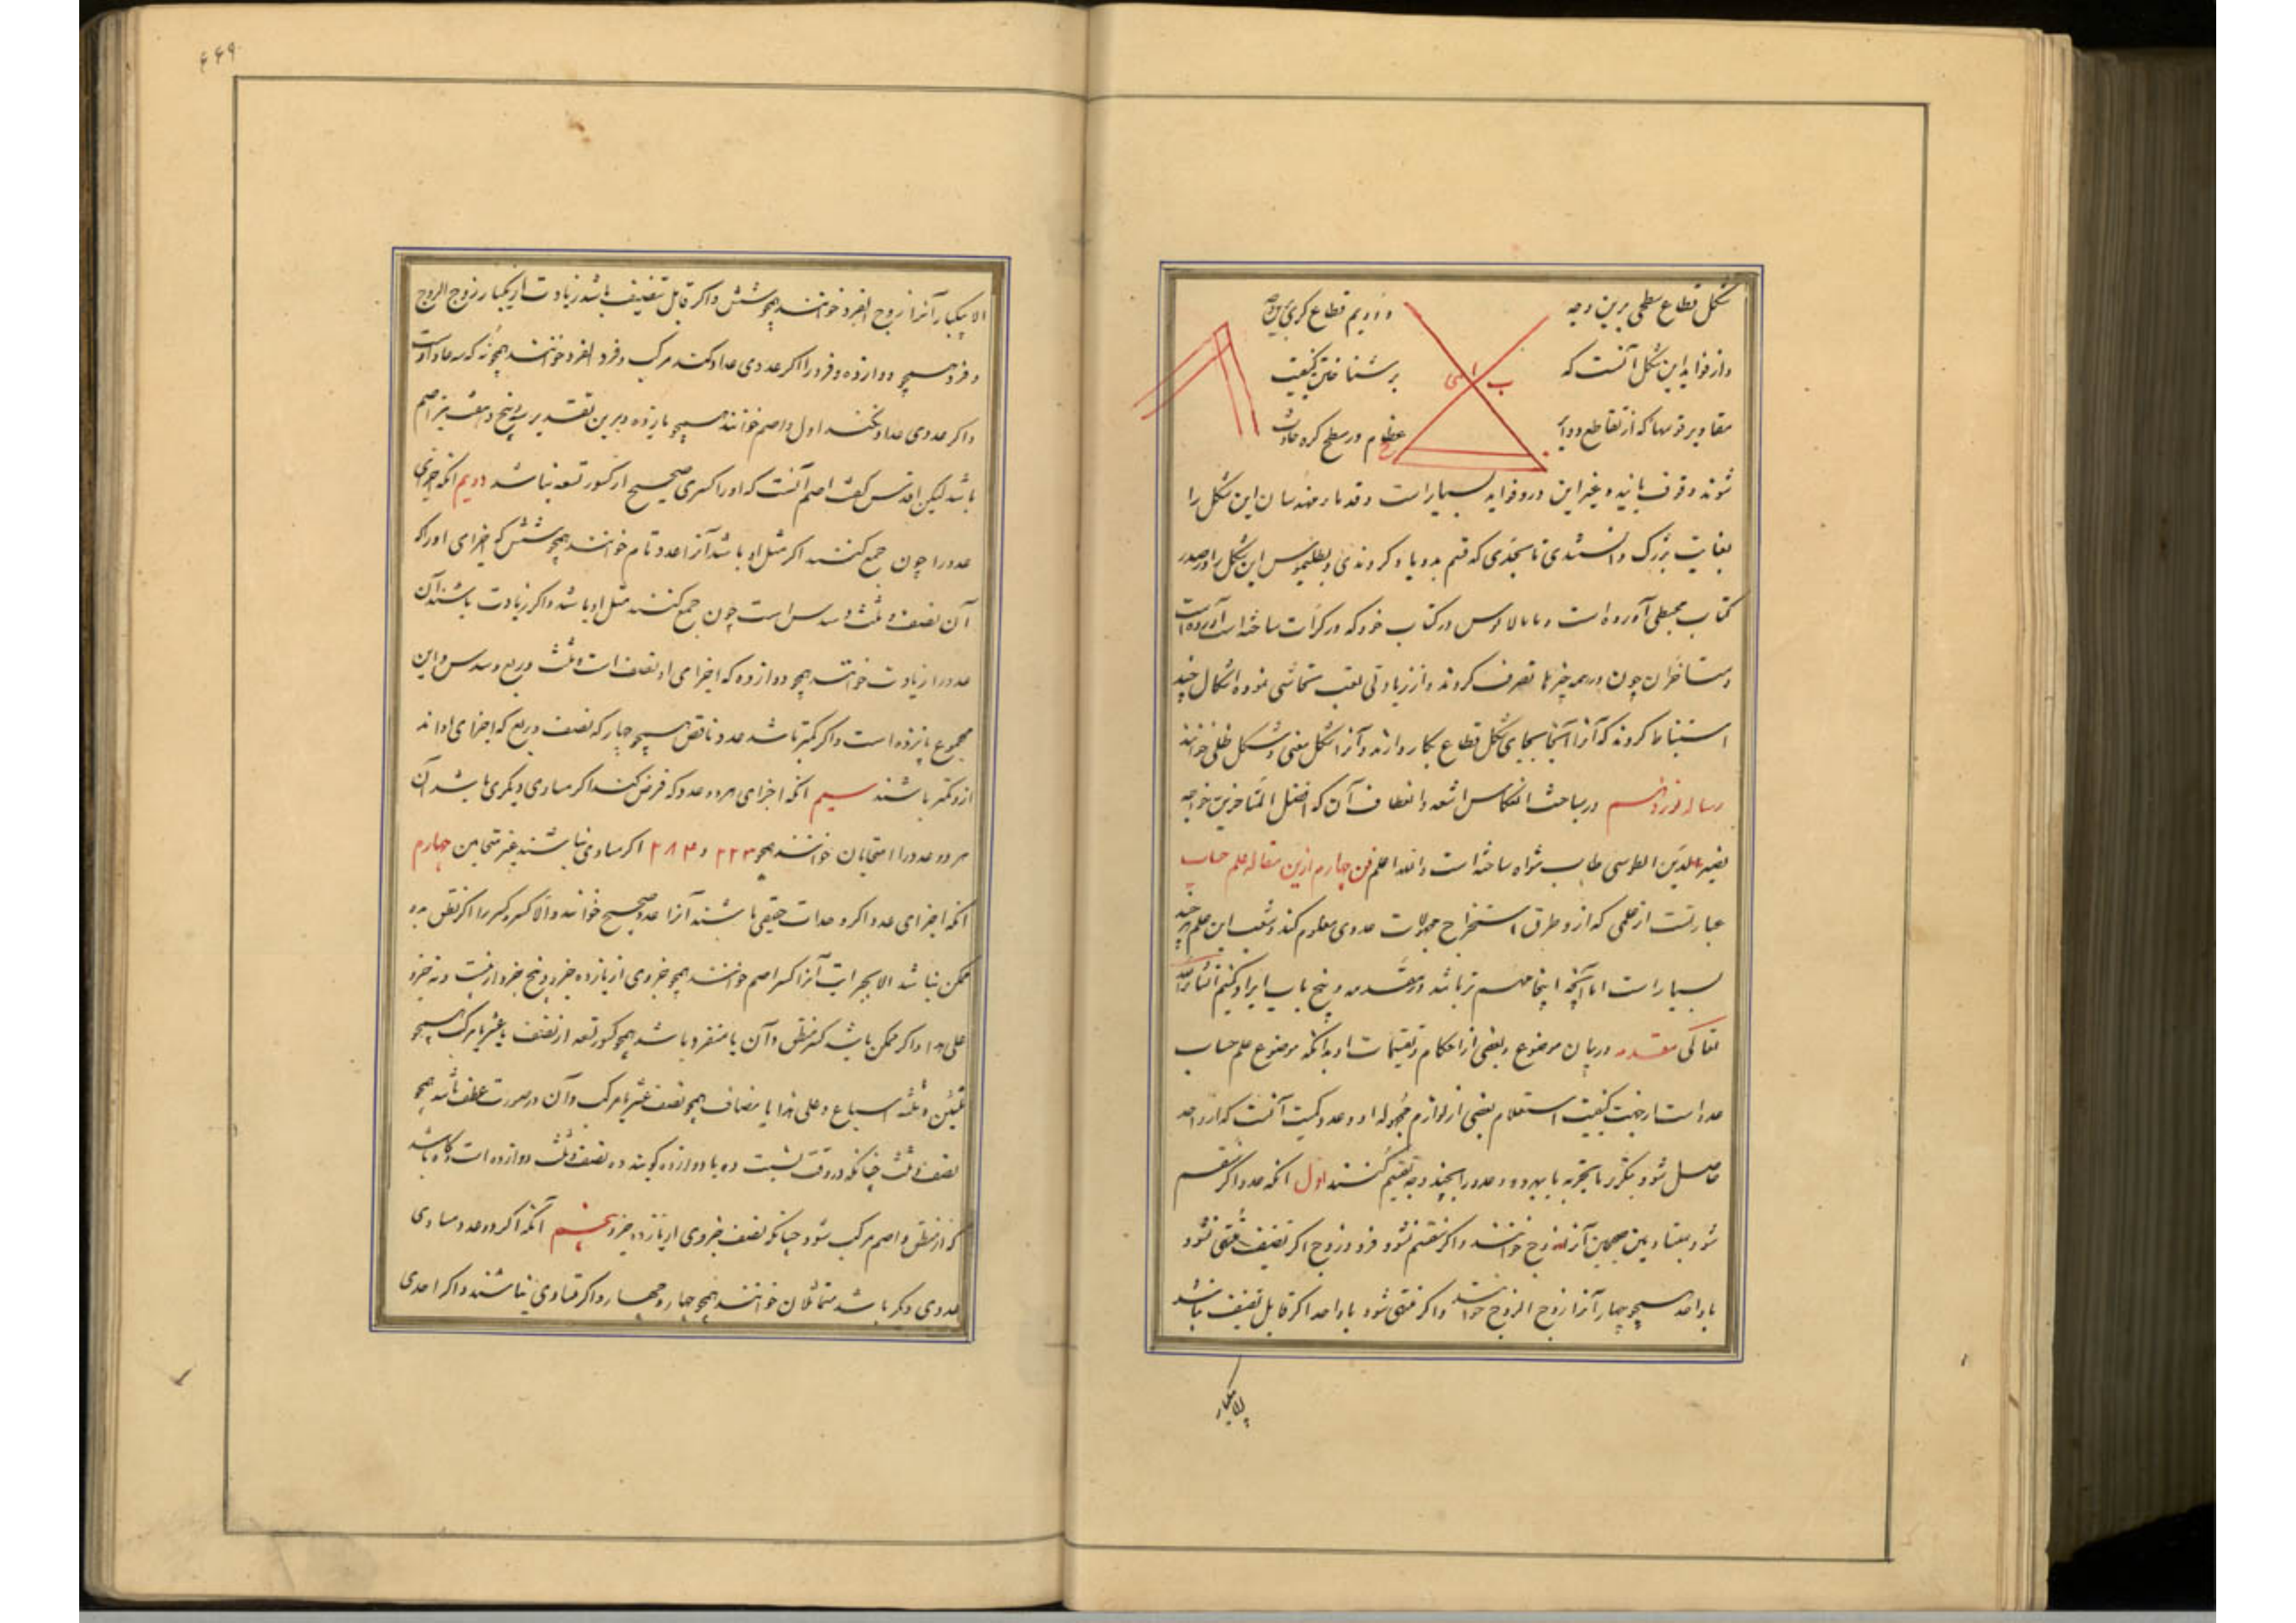 شکل قطاع سطحی برین وجه
و دویم قطاع کری برین وجه
ب
ا
واز فواید این شکل آنست که
بر شناختن کیفیت
مقادیر قوسها که از تقاطع دوایر
عظام در سطح کره حادث
شوند وقوف یابند و غیر این درو فواید بسیار است و قدماء مهندسان این شکل را
بغایت بزرگ دانستندی تا بحدی که قسم بدو یاد کردندی و بطلیموس این شکل را در صدر
کتاب مجسطی آورده است و مانالاوس در کتاب خود که در کرات ساخته است آورده است
و متاخران چون در همه چیزها تصرف کردند و از زیادتی تعب تحاشی نموده اشکال چند
استنباط کردند که آنرا آنجا بجای شکل قطاع بکار دارند و آنرا شکل مغنی و شکل ظلی خوانند
رساله در مباحث انعکاس اشعه و انعطاف آن که افضل المتاخرین خواجه
نصیر الدین الطوسی طاب ثراه ساخته است والله اعلم فن چهارم ازین مقاله علم حساب
عبارتست از علمی که ازو طرق استخراج مجهولات عددی معلوم کند و شعب این علم هر چند
بسیار است اما آنچه اینجا مهم تر باشد در مقدمه و پنج باب ایراد کنیم انشاءالله
تعالی مقدمه در بیان موضوع و بعضی از احکام و تقسیمات او بدانکه موضوع علم حساب
عدد است از جهت کیفیت استعلام بعضی از لوازم مجهوله او و عدد کمیت آنست که از واحد
حاصل شود بتکرر یا بتجزیه یا بهر دو و عدد را بچند وجه تقسیم کنند اول آنکه عدد اگر منقسم
شود بمتساویین صحیحین آنرا زوج خوانند و اگر منقسم نشود فرد و زوج اگر تنصیف منتهی شود
با واحد همچو چهار آنرا زوج الزوج خوانند و اگر منتهی نشود با واحد اگر قابل تنصیف نباشد
الا بیکبار
۴۴۹
الا بیکبار آنرا زوج الفرد خوانند همچو شش و اگر قابل تنصیف باشد زیادت از یکبار زوج الزوج
و فرد همچو دوازده و فرد را اگر عددی عدد کند مرکب و فرد الفرد خوانند همچو نه که سه عاد اوست
و اگر عددی عاد نکند اول و اصم خوانند همچو یازده و برین تقدیر سه و پنج و هفت نیز اصم
باشد لیکن اقلیدس گفت اصم آنست که او را کسری صحیح از کسور تسعه نباشد دویم آنکه اجزای
عدد را چون جمع کنند اگر مثل او باشد آنرا عدد تام خوانند همچو شش که اجزای او را که
آن نصف و ثلث و سدس است چون جمع کنند مثل او باشد و اگر زیادت باشند آن
عدد را زیادت خوانند همچو دوازده که اجزای او نصف است و ثلث و ربع و سدس و این
مجموع پانزده است و اگر کمتر باشد عدد ناقص همچو چهار که نصف و ربع که اجزای او اند
ازو کمتر باشند سیم آنکه اجزای هر دو عدد که فرض کنند اگر مساوی دیگری باشد آن
هر دو عدد را متحابان خوانند همچو ۲۲۳ و ۲۸۴ اگر مساوی نباشند غیر متحابین چهارم
آنکه اجزای عدد اگر وحدات حقیقی باشند آنرا عدد صحیح خوانند و الا کسر و کسر را اگر نطق بدو
ممکن نباشد الا بجزئیت آنرا کسر اصم خوانند همچو جزوی از یازده جزو و پنج جزو از بیست و نه جزو
علی هذا و اگر ممکن باشد کسر منطق و آن یا منفرد باشد همچو کسور تسعه از نصف یا عشر یا مرکب همچو
ثلثین و ثلثه اسباع و علی هذا یا مضاف همچو نصف عشر یا مرکب و آن در صورت عطف باشد همچو
نصف و ثلث چنانکه در وقت نسبت ده با دوازده گویند ده نصف و ثلث دوازده است و گاه باشد
که از منطق و اصم مرکب شود چنانکه نصف جزوی از یازده جزو پنجم آنکه اگر دو عدد مساوی
عددی دیگر باشد متماثلان خوانند همچو چهار و چهار و اگر متساوی نباشند و اگر احدی